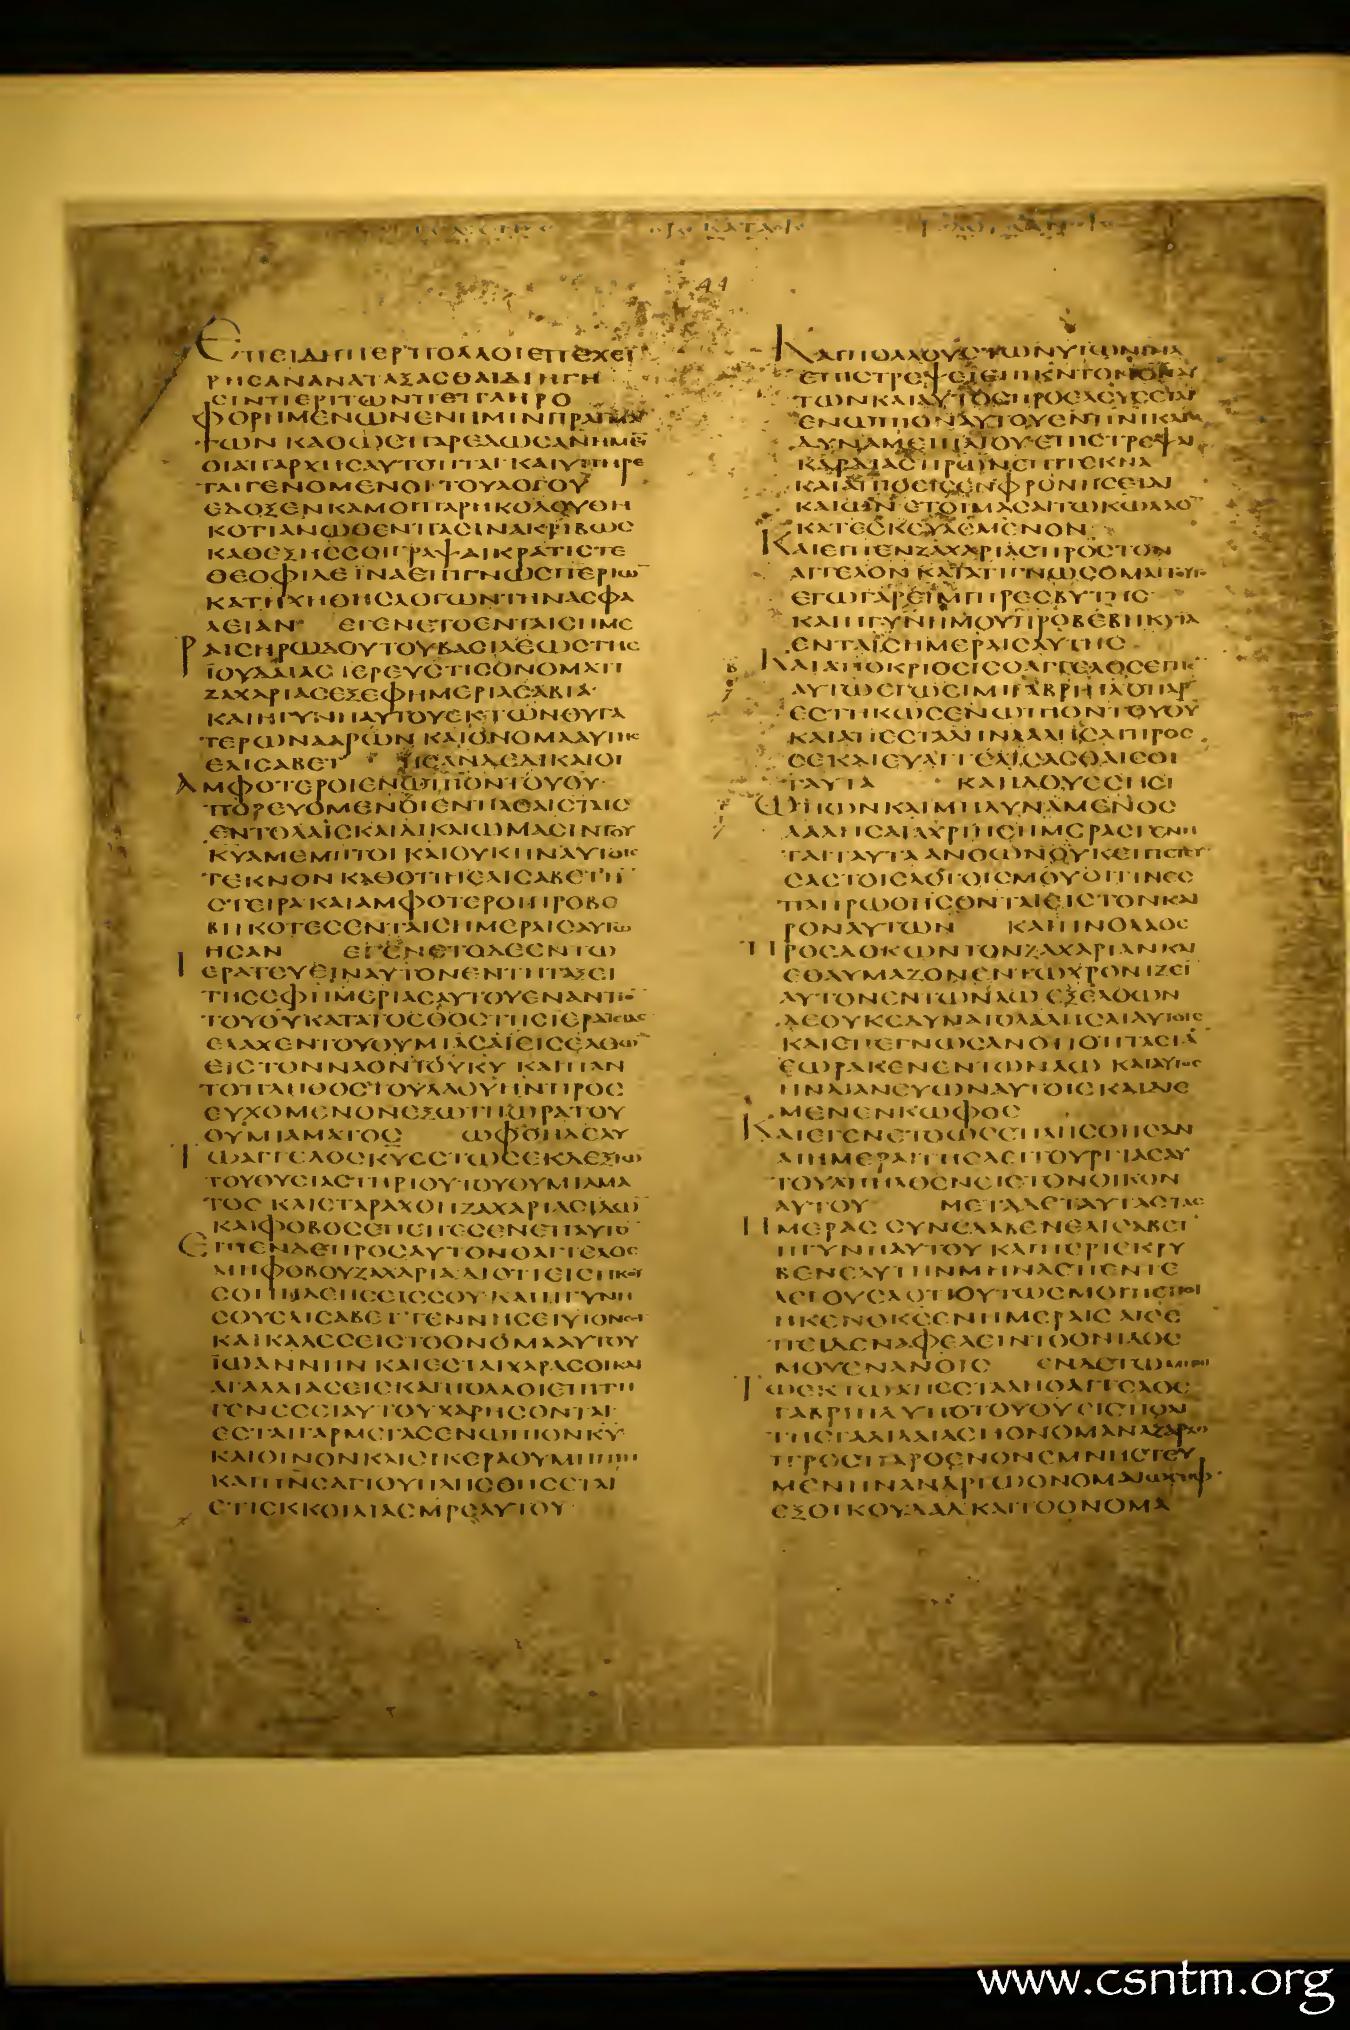 44
ΕΠΕΙΔΗΠΕΡΠΟΛΛΟΙΕΠΕΧΕΙ
ΡΗCΑΝΑΝΑΤΑΞΑCΘΑΙΔΙΗΓΗ
CΙΝΠΕΡΙΤΩΝΠΕΠΛΗΡΟ
ΦΟΡΗΜΕΝΩΝΕΝΗΜΙΝΠΡΑΓΜΑ
ΤΩΝ ΚΑΘΩCΠΑΡΕΔΩCΑΝΗΜΙ
ΟΙΑΠΑΡΧΗCΑΥΤΟΠΤΑΙ ΚΑΙΥΠΗΡΕ
ΤΑΙΓΕΝΟΜΕΝΟΙ ΤΟΥΛΟΓΟΥ
ΕΔΟΞΕΝΚΑΜΟΙΠΑΡΗΚΟΛΟΥΘΗ
ΚΟΤΙΑΝΩΘΕΝΠΑCΙΝΑΚΡΙΒΩC
ΚΑΘΕΞΗCCΟΙΓΡΑΨΑΙΚΡΑΤΙCΤΕ
ΘΕΟΦΙΛΕ ΪΝΑΕΠΙΓΝΩCΠΕΡΙΩ
ΚΑΤΗΧΗΘΗCΛΟΓΩΝΤΗΝΑCΦΑ
ΛΕΙΑΝ ΕΓΕΝΕΤΟΕΝΤΑΙCΗΜΕ
ΡΑΙCΗΡΩΔΟΥΤΟΥΒΑCΙΛΕΩCΤΗC
ΪΟΥΔΑΙΑC ΙΕΡΕΥCΤΙCΟΝΟΜΑΤΙ
ΖΑΧΑΡΙΑCΕΞΕΦΗΜΕΡΙΑCΑΒΙΑ
ΚΑΙΗΓΥΝΗΑΥΤΟΥΕΚΤΩΝΘΥΓΑ
ΤΕΡΩΝΑΑΡΩΝ ΚΑΙΟΝΟΜΑΑΥΤΗC
ΕΛΙCΑΒΕΤ ΗCΑΝΔΕΔΙΚΑΙΟΙ
ΑΜΦΟΤΕΡΟΙΕΝΩΠΙΟΝΤΟΥΘΥ
ΠΟΡΕΥΟΜΕΝΟΙΕΝΠΑCΑΙCΤΑΙC
ΕΝΤΟΛΑΙCΚΑΙΔΙΚΑΙΩΜΑCΙΝΤΟΥ
ΚΥΑΜΕΜΠΤΟΙ ΚΑΙΟΥΚΗΝΑΥΤΟΙC
ΤΕΚΝΟΝ ΚΑΘΟΤΙΗΕΛΙCΑΒΕΤΗ
CΤΕΙΡΑ ΚΑΙΑΜΦΟΤΕΡΟΙΠΡΟΒΕ
ΒΗΚΟΤΕCΕΝΤΑΙCΗΜΕΡΑΙCΑΥΤΩ
ΗCΑΝ ΕΓΕΝΕΤΟΔΕΕΝΤΩ
ΙΕΡΑΤΕΥΕΙΝΑΥΤΟΝΕΝΤΗΤΑΞΕΙ
ΤΗCΕΦΗΜΕΡΙΑCΑΥΤΟΥΕΝΑΝΤΙ
ΤΟΥΘΥΚΑΤΑΤΟΕΘΟCΤΗCΙΕΡΑΤΕΙΑC
ΕΛΑΧΕΝΤΟΥΘΥΜΙΑCΑΙΕΙCΕΛΘΩ
ΕΙCΤΟΝΝΑΟΝΤΟΥΚΥ ΚΑΙΠΑΝ
ΤΟΠΛΗΘΟCΤΟΥΛΑΟΥΗΝΠΡΟC
ΕΥΧΟΜΕΝΟΝΕΞΩΤΗΩΡΑΤΟΥ
ΘΥΜΙΑΜΑΤΟC ΩΦΘΗΔΕΑΥ
ΤΩΑΓΓΕΛΟCΚΥΕCΤΩCΕΚΔΕΞΙΩ
ΤΟΥΘΥCΙΑCΤΗΡΙΟΥΤΟΥΘΥΜΙΑΜΑ
ΤΟC ΚΑΙΕΤΑΡΑΧΘΗΖΑΧΑΡΙΑCΙΔΩ
ΚΑΙΦΟΒΟCΕΠΕΠΕCΕΝΕΠΑΥΤΟ
ΕΙΠΕΝΔΕΠΡΟCΑΥΤΟΝΟΑΓΓΕΛΟC
ΜΗΦΟΒΟΥΖΑΧΑΡΙΑ ΔΙΟΤΙΕΙCΗΚΟΥ
CΘΗΗΔΕΗCΙCCΟΥ ΚΑΙΗΓΥΝΗ
CΟΥΕΛΙCΑΒΕΤΓΕΝΝΗCΕΙΥΙΟΝCΟΙ
ΚΑΙΚΑΛΕCΕΙCΤΟΟΝΟΜΑΑΥΤΟΥ
ΪΩΑΝΝΗΝ ΚΑΙΕCΤΑΙΧΑΡΑCΟΙΚΑΙ
ΑΓΑΛΛΙΑCΕΙCΚΑΙΠΟΛΛΟΙΕΠΙΤΗ
ΓΕΝΕCΕΙΑΥΤΟΥΧΑΡΗCΟΝΤΑΙ
ΕCΤΑΙΓΑΡΜΕΓΑCΕΝΩΠΙΟΝΚΥ
ΚΑΙΟΙΝΟΝΚΑΙCΙΚΕΡΑΟΥΜΗΠΙΗ
ΚΑΙΠΝCΑΓΙΟΥΠΛΗCΘΗCΕΤΑΙ
ΕΤΙΕΚΚΟΙΛΙΑCΜΡCΑΥΤΟΥ
ΚΑΙΠΟΛΛΟΥCΤΩΝΥΙΩΝΙΗΛ
ΕΠΙCΤΡΕΨΕΙΕΠΙΚΝΤΟΝΘΝΑΥ
ΤΩΝΚΑΙΑΥΤΟCΠΡΟΕΛΕΥCΕΤΑΙ
ΕΝΩΠΙΟΝΑΥΤΟΥΕΝΠΝΙΚΑΙ
ΔΥΝΑΜΕΙΗΛΙΟΥΕΠΙCΤΡΕΨΑΙ
ΚΑΡΔΙΑCΠΡΩΝΕΠΙΤΕΚΝΑ
ΚΑΙΑΠΕΙΘΕΙCΕΝΦΡΟΝΗCΕΙΔΙ
ΚΑΙΩΝ ΕΤΟΙΜΑCΑΙΤΩΚΩΛΑΟ
ΚΑΤΕCΚΕΥΑCΜΕΝΟΝ
ΚΑΙΕΙΠΕΝΖΑΧΑΡΙΑCΠΡΟCΤΟΝ
ΑΓΓΕΛΟΝ ΚΑΤΑΤΙΓΝΩCΟΜΑΙΤΟΥΤΟ
ΕΓΩΓΑΡΕΙΜΙΠΡΕCΒΥΤΗC
ΚΑΙΗΓΥΝΗΜΟΥΠΡΟΒΕΒΗΚΥΙΑ
ΕΝΤΑΙCΗΜΕΡΑΙCΑΥΤΗC
ΚΑΙΑΠΟΚΡΙΘΕΙCΟΑΓΓΕΛΟCΕΙΠΕ
ΑΥΤΩΕΓΩΕΙΜΙΓΑΒΡΙΗΛΟΠΑΡ
ΕCΤΗΚΩCΕΝΩΠΙΟΝΤΟΥΘΥ
ΚΑΙΑΠΕCΤΑΛΗΝΛΑΛΗCΑΙΠΡΟC
CΕΚΑΙΕΥΑΓΓΕΛΙCΑCΘΑΙCΟΙ
ΤΑΥΤΑ ΚΑΙΙΔΟΥΕCΗCΙ
ΩΠΩΝΚΑΙΜΗΔΥΝΑΜΕΝΟC
ΛΑΛΗCΑΙΑΧΡΙΗCΗΜΕΡΑCΓΕΝΗ
ΤΑΙΤΑΥΤΑ ΑΝΘΩΝΟΥΚΕΠΙCΤΕΥ
CΑCΤΟΙCΛΟΓΟΙCΜΟΥΟΙΤΙΝΕC
ΠΛΗΡΩΘΗCΟΝΤΑΙΕΙCΤΟΝΚΑΙ
ΡΟΝΑΥΤΩΝ ΚΑΙΗΝΟΛΑΟC
ΠΡΟCΔΟΚΩΝΤΟΝΖΑΧΑΡΙΑΝΚΑΙ
ΕΘΑΥΜΑΖΟΝΕΝΤΩΧΡΟΝΙΖΕΙ
ΑΥΤΟΝΕΝΤΩΝΑΩ ΕΞΕΛΘΩΝ
ΔΕΟΥΚΕΔΥΝΑΤΟΛΑΛΗCΑΙΑΥΤΟΙC
ΚΑΙΕΠΕΓΝΩCΑΝΟΤΙΟΠΤΑCΙΑ
ΕΩΡΑΚΕΝΕΝΤΩΝΑΩ ΚΑΙΑΥΤΟC
ΗΝΔΙΑΝΕΥΩΝΑΥΤΟΙC ΚΑΙΔΙΕ
ΜΕΝΕΝΚΩΦΟC
ΚΑΙΕΓΕΝΕΤΟΩCΕΠΛΗCΘΗCΑΝ
ΑΙΗΜΕΡΑΙΤΗCΛΕΙΤΟΥΡΓΙΑCΑΥ
ΤΟΥΑΠΗΛΘΕΝΕΙCΤΟΝΟΙΚΟΝ
ΑΥΤΟΥ ΜΕΤΑΔΕΤΑΥΤΑCΤΑC
ΗΜΕΡΑC CΥΝΕΛΑΒΕΝΕΛΙCΑΒΕΤ
ΗΓΥΝΗΑΥΤΟΥ ΚΑΙΠΕΡΙΕΚΡΥ
ΒΕΝΕΑΥΤΗΝΜΗΝΑCΠΕΝΤΕ
ΛΕΓΟΥCΑΟΤΙΟΥΤΩCΜΟΙΠΕΠΟΙ
ΗΚΕΝΟΚCΕΝΗΜΕΡΑΙC ΑΙCΕ
ΠΕΙΔΕΝΑΦΕΛΕΙΝΤΟΟΝΙΔΟC
ΜΟΥΕΝΑΝΟΙC ΕΝΔΕΤΩΜΗΝΙ
ΤΩΕΚΤΩΑΠΕCΤΑΛΗΟΑΓΓΕΛΟC
ΓΑΒΡΙΗΛΥΠΟΤΟΥΘΥΕΙCΠΟΛΙ
ΤΗCΓΑΛΙΛΑΙΑCΗΟΝΟΜΑΝΑΖΑΡΑΤ
ΠΡΟCΠΑΡΘΕΝΟΝΕΜΝΗCΤΕΥ
ΜΕΝΗΝΑΝΔΡΙΩΟΝΟΜΑΙΩCΗΦ
ΕΞΟΙΚΟΥΔΑΔ ΚΑΙΤΟΟΝΟΜΑ
www.csntm.org